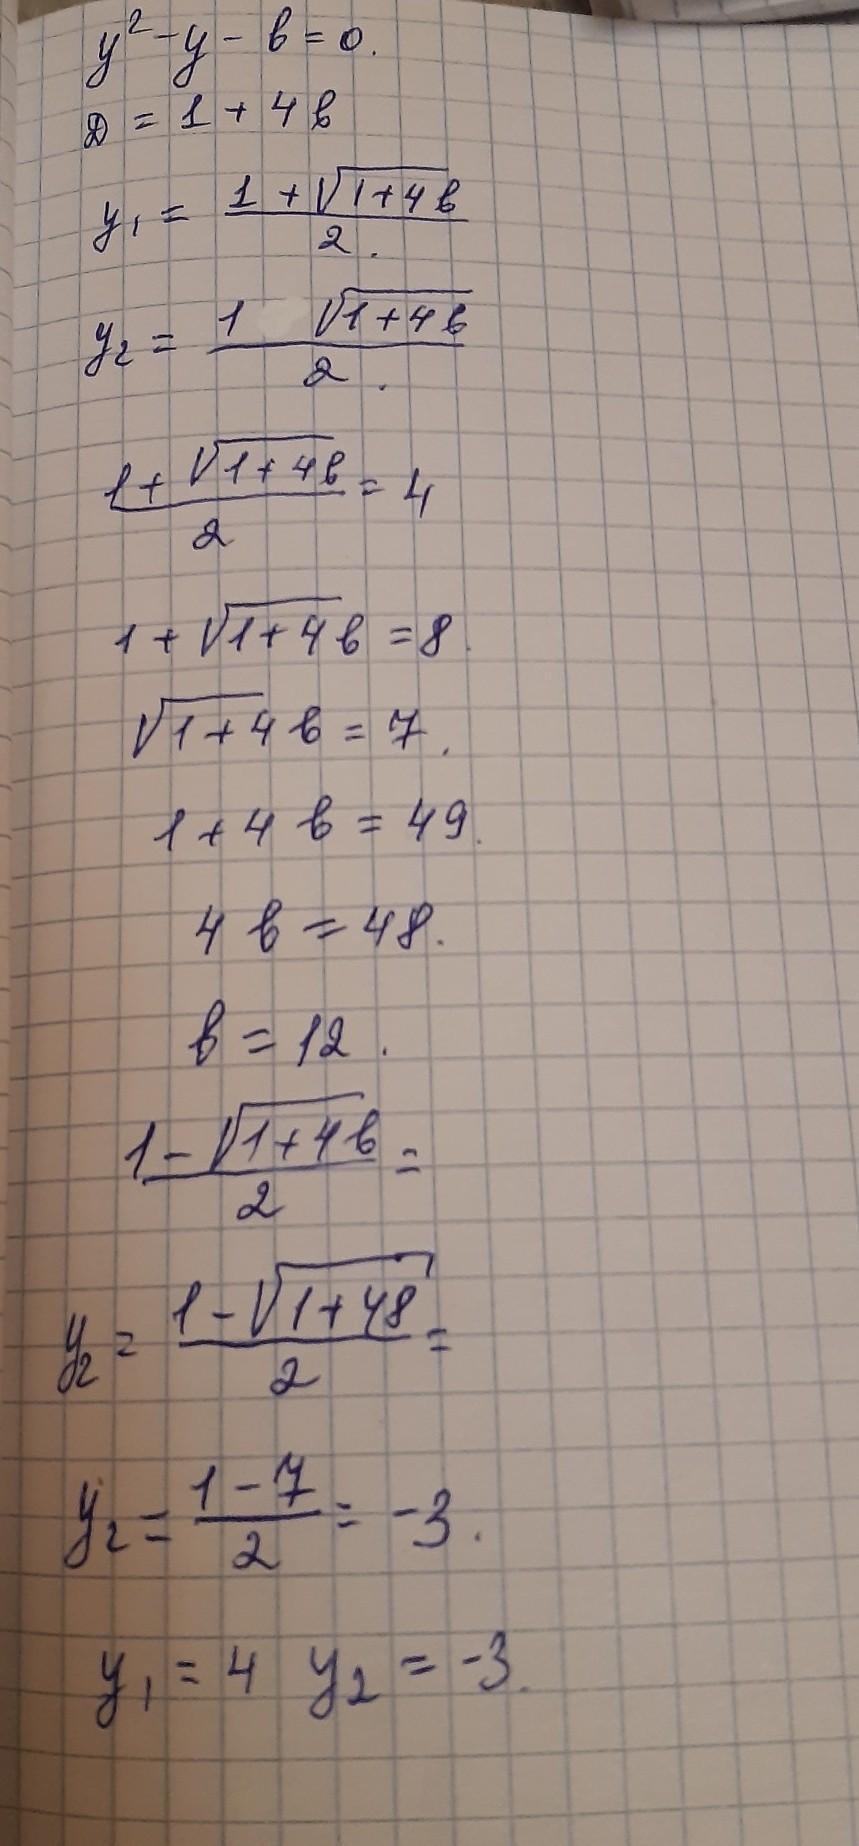 y² - y - b = 0.
D = 1 + 4b
y₁ = (1 + √(1+4b))/2.
y₂ = (1 √(1+4b))/2.
(1 + √(1+4b))/2 = 4
1 + √(1+4)b = 8.
√(1+4)b = 7.
1 + 4b = 49.
4b = 48.
b = 12.
(1 - √(1+4b))/2 =
y₂ = (1 - √(1+48))/2 =
y₂ = (1 - 7)/2 = -3.
y₁ = 4 y₂ = -3.